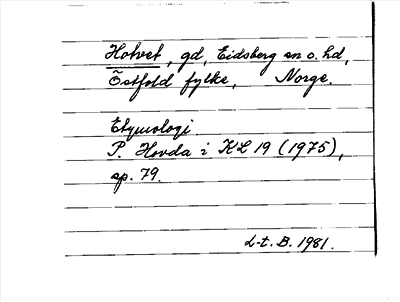 Hotvet, gd, Eidsberg sn o. hd,
Östfold fylke, Norge.
Etymologi.
P. Hovda i KL 19 (1975),
sp. 79.
L-t. B. 1981.